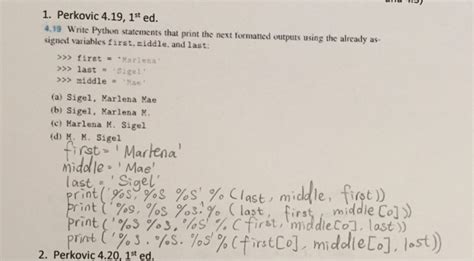 1. Perkovic 4.19, 1st ed.
4.19 Write Python statements that print the next formatted outputs using the already as-
signed variables first, middle, and last:
>>> first = 'Marlena'
>>> last = 'Sigel'
>>> middle = 'Mae'
(a) Sigel, Marlena Mae
(b) Sigel, Marlena M.
(c) Marlena M. Sigel
(d) M. M. Sigel
first = 'Marlena'
middle = 'Mae'
last = 'Sigel'
print('%s, %s %s' % (last, middle, first))
print('%s, %s %s.' % (last, first, middle[0]))
print('%s %s. %s' % (first, middle[0], last))
print('%s. %s. %s' % (first[0], middle[0], last))
2. Perkovic 4.20, 1st ed.